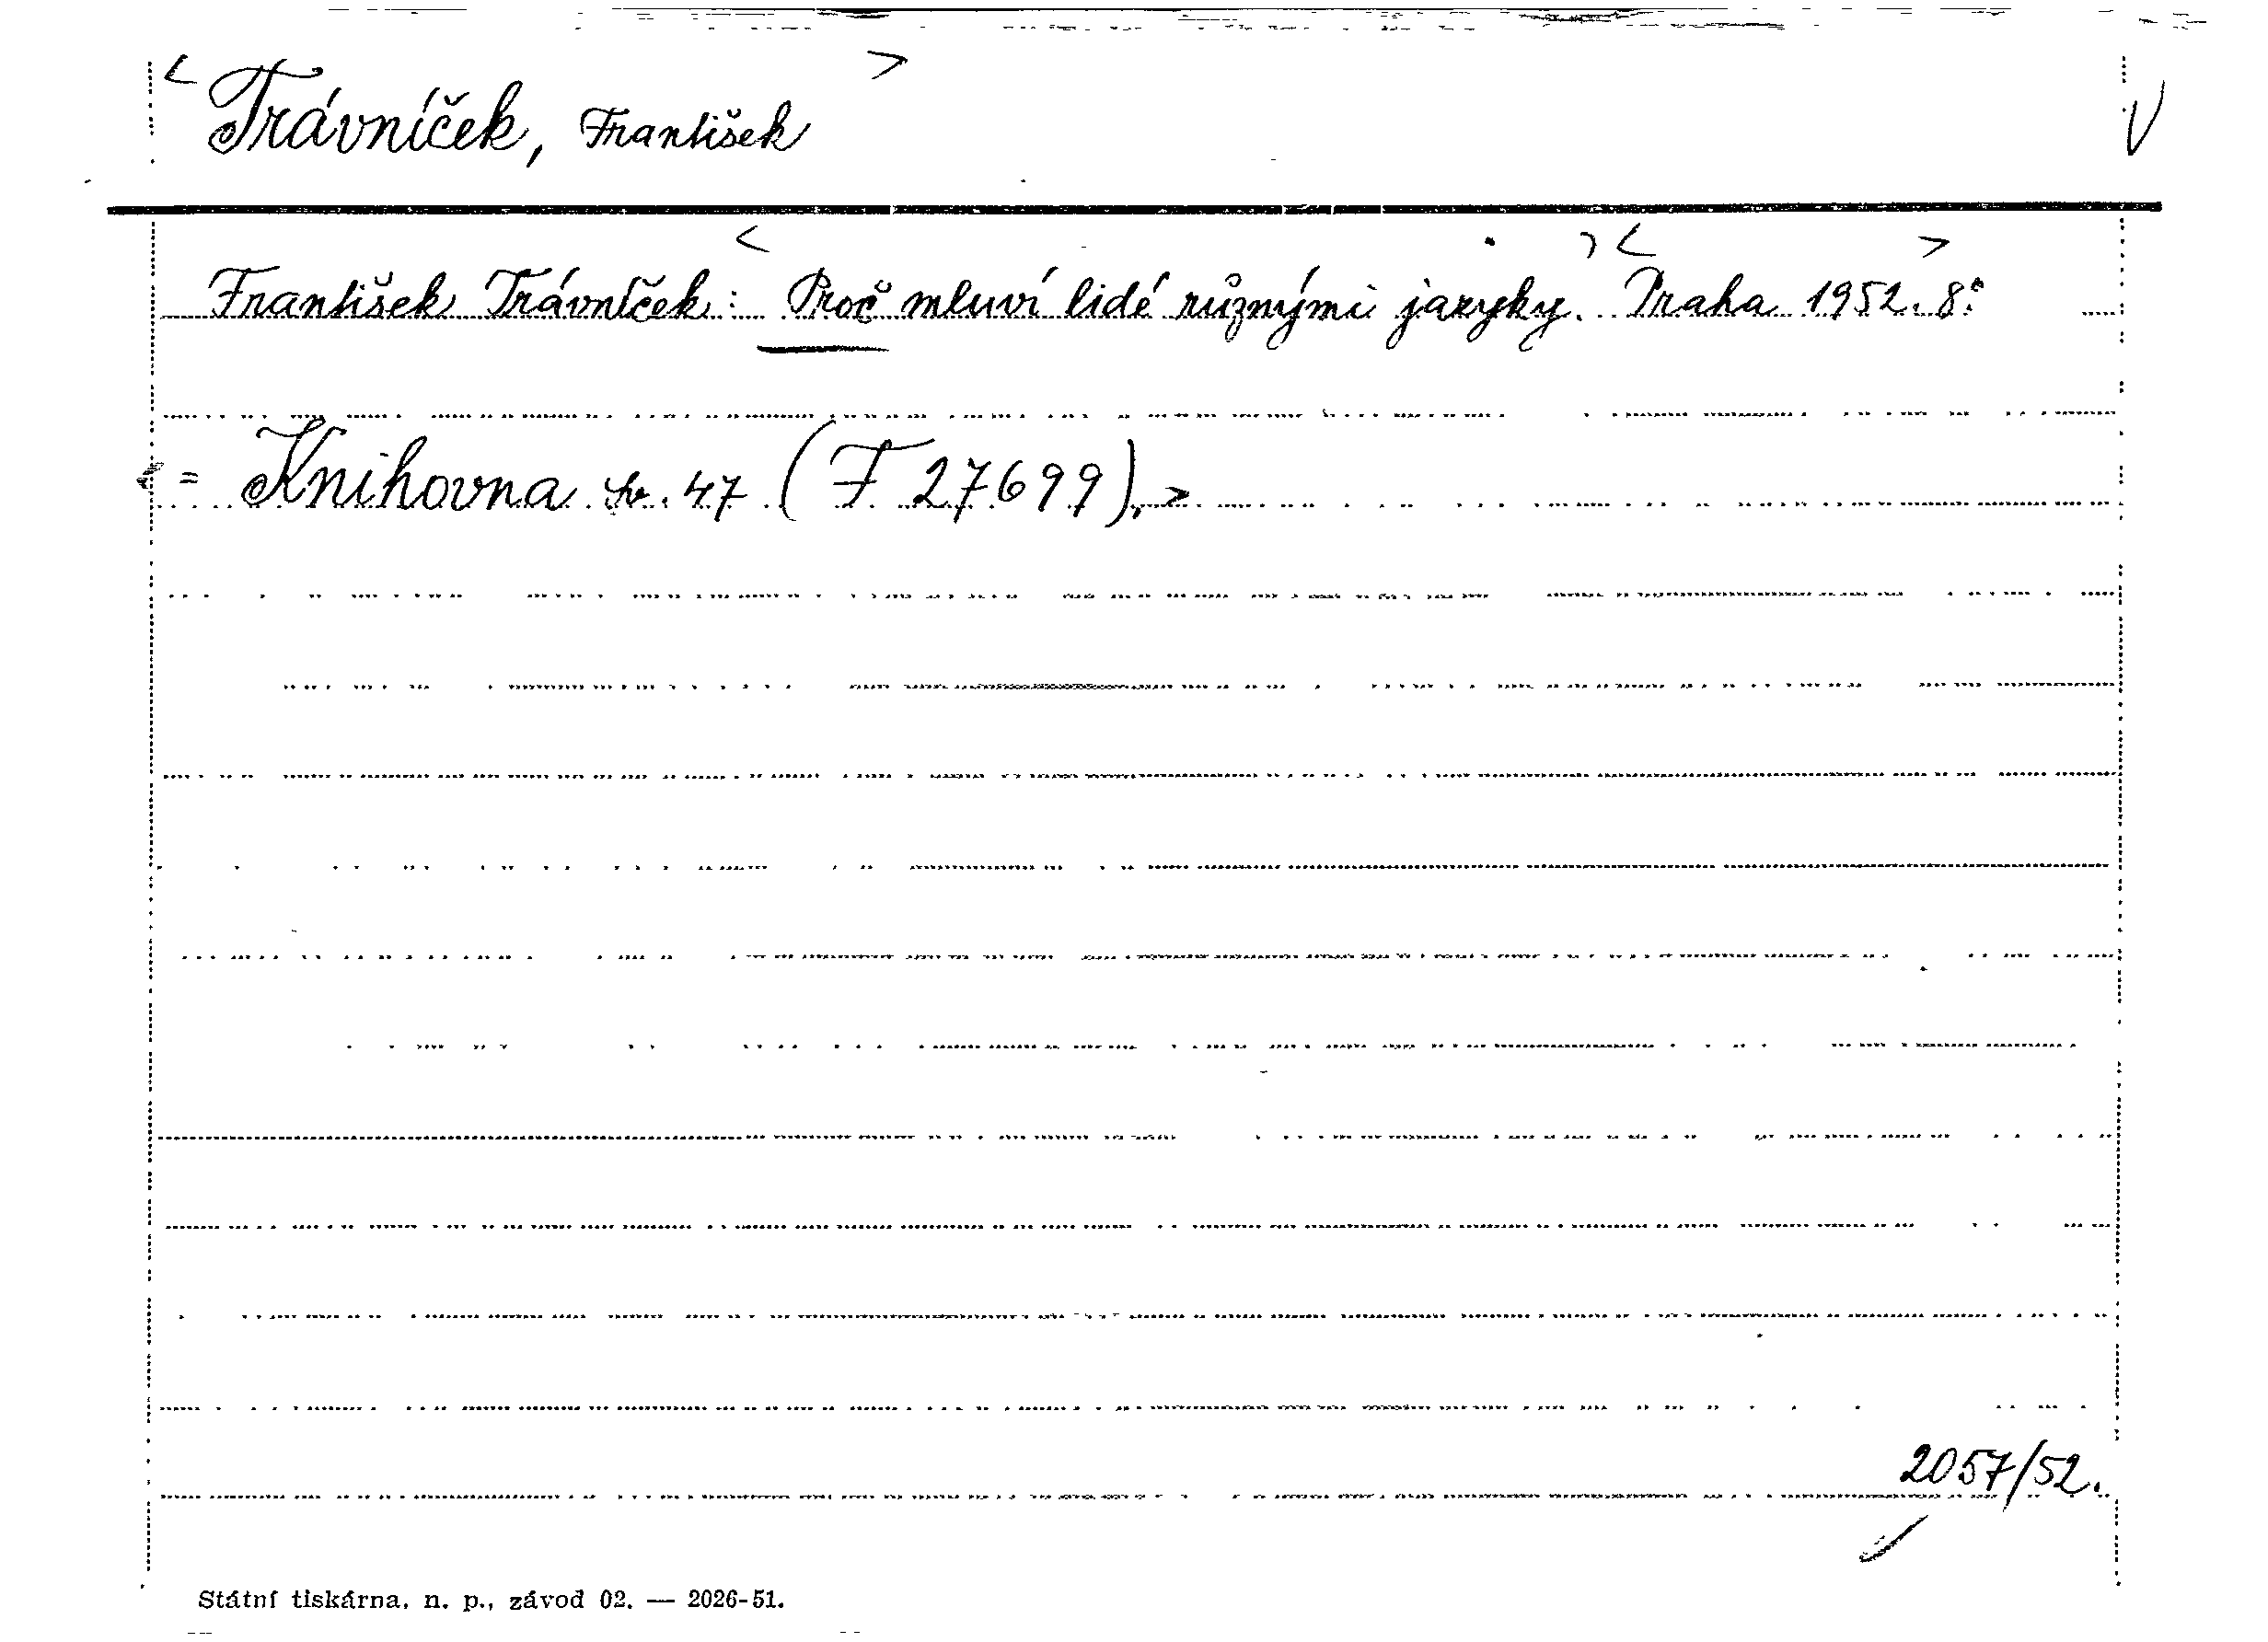 < Trávníček, František > V
František Trávníček: < Proč mluví lidé různými jazyky. > < Praha 1952. 8°. >
< = Knihovna sv. 47 (F 27699). >
2057/52.
Státní tiskárna, n. p., závod 02. — 2026-51.